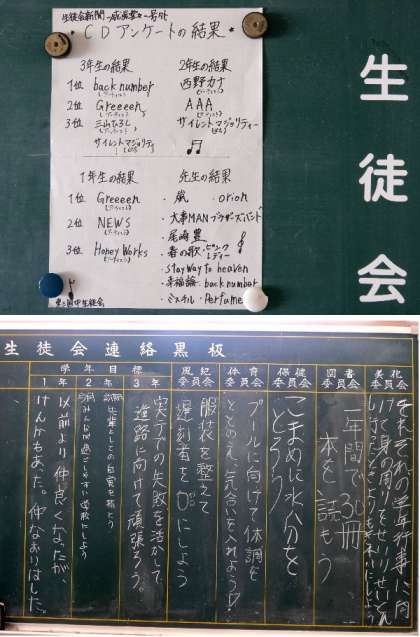 生徒会新聞
号外
CDアンケートの結果
3年生の結果
1位 back number
2位 Greeeen
3位 三山ひろし
サイレントマジョリティ
2年生の結果
西野カナ
AAA
サイレントマジョリティー
1年生の結果
1位 Greeeen
2位 NEWS
3位 Honey Works
先生の結果
・嵐 ・orion
・大事MANブラザーズバンド
・尾崎豊
・春の歌・ピンクレディー
・stayway to heaven
・幸福論・back number
・ミスチル・Perfume
生徒会
生徒会連絡黒板
美化委員会
それぞれの学年行事に向
けて身の周りをせいりせいとん
図書委員会
一年間で30冊
本を読もう
保健委員会
こまめに水分を
とろう
体育委員会
プールに向けて体調を
ととのえ、気合いを入れよう
風紀委員会
服装を整えて
遅刻者を0にしよう
学年目標
3年
実テでの失敗を活かして
進路に向けて頑張ろう。
2年
先輩としての自覚を持とう
1年
以前より仲良くなったが、
けんかもあった。仲なおりはした。